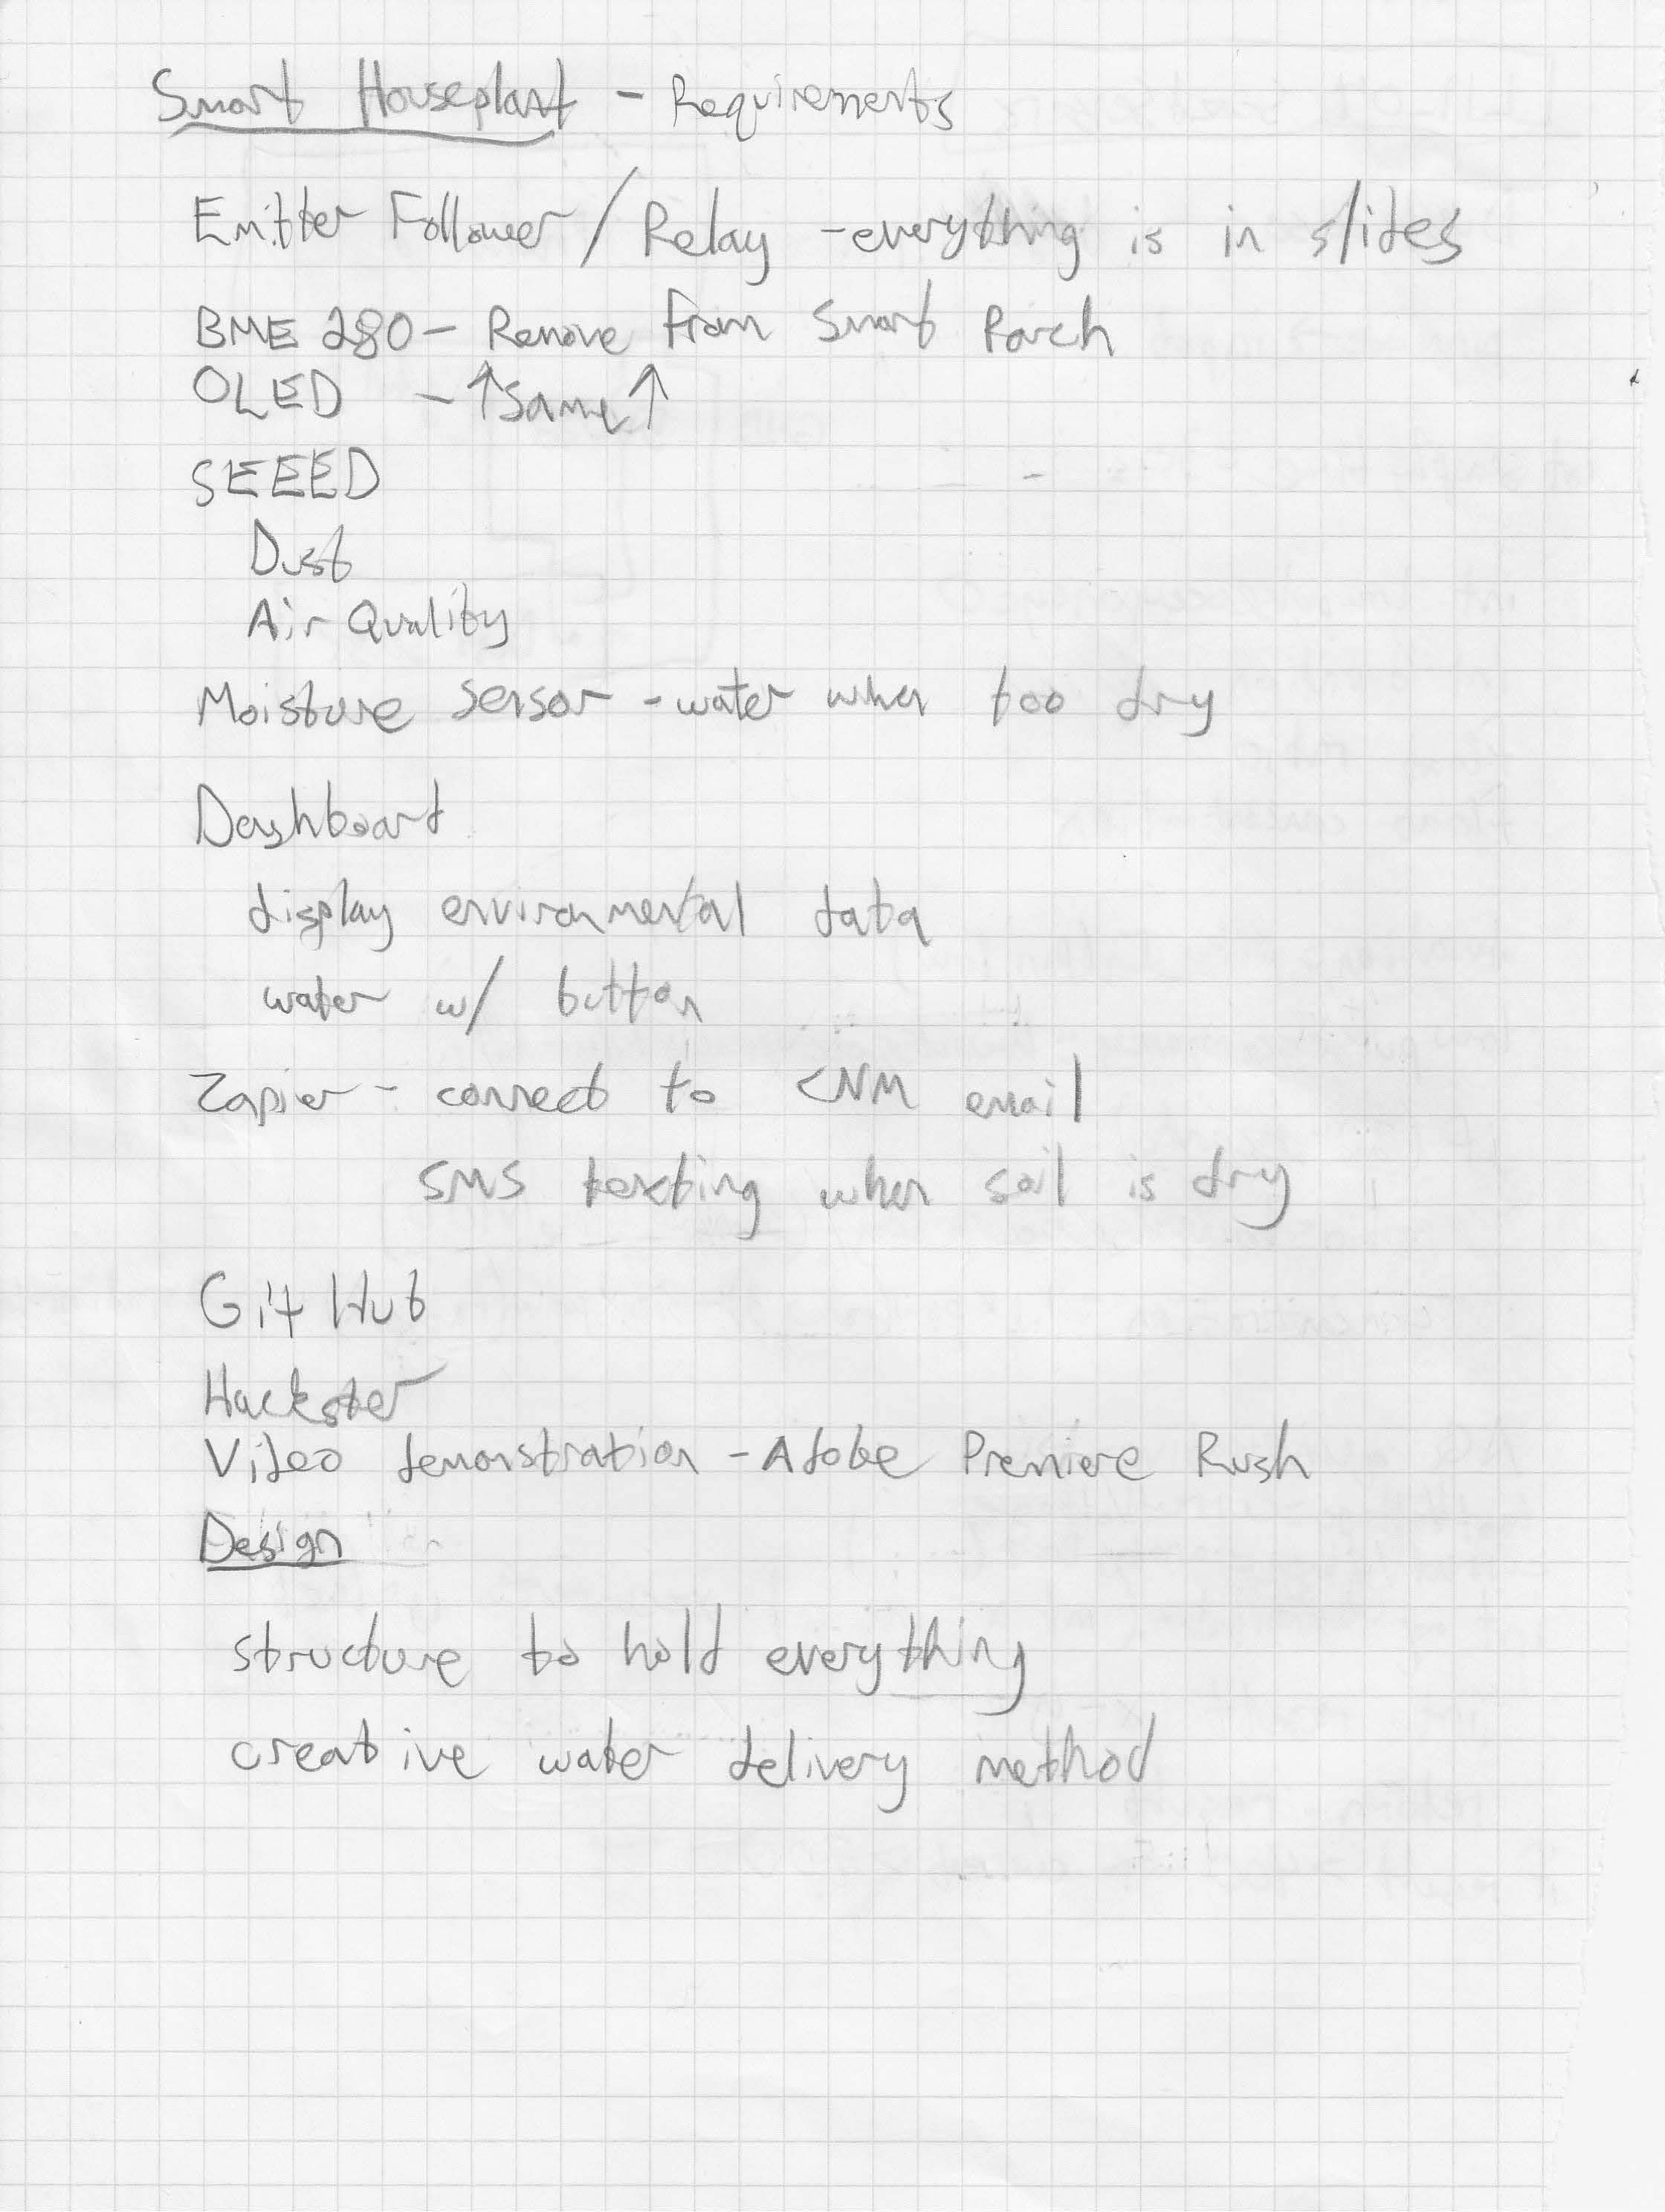 Smart Houseplant - Requirements
Emitter Follower / Relay - everything is in slides
BME 280 - Remove from Smart Porch
OLED - ↑same↑
SEEED
Dust
Air Quality
Moisture sensor - water when too dry
Dashboard
display environmental data
water w/ button
Zapier - connect to CNM email
SMS texting when soil is dry
GitHub
Hackster
Video demonstration - Adobe Premiere Rush
Design
structure to hold everything
creative water delivery method